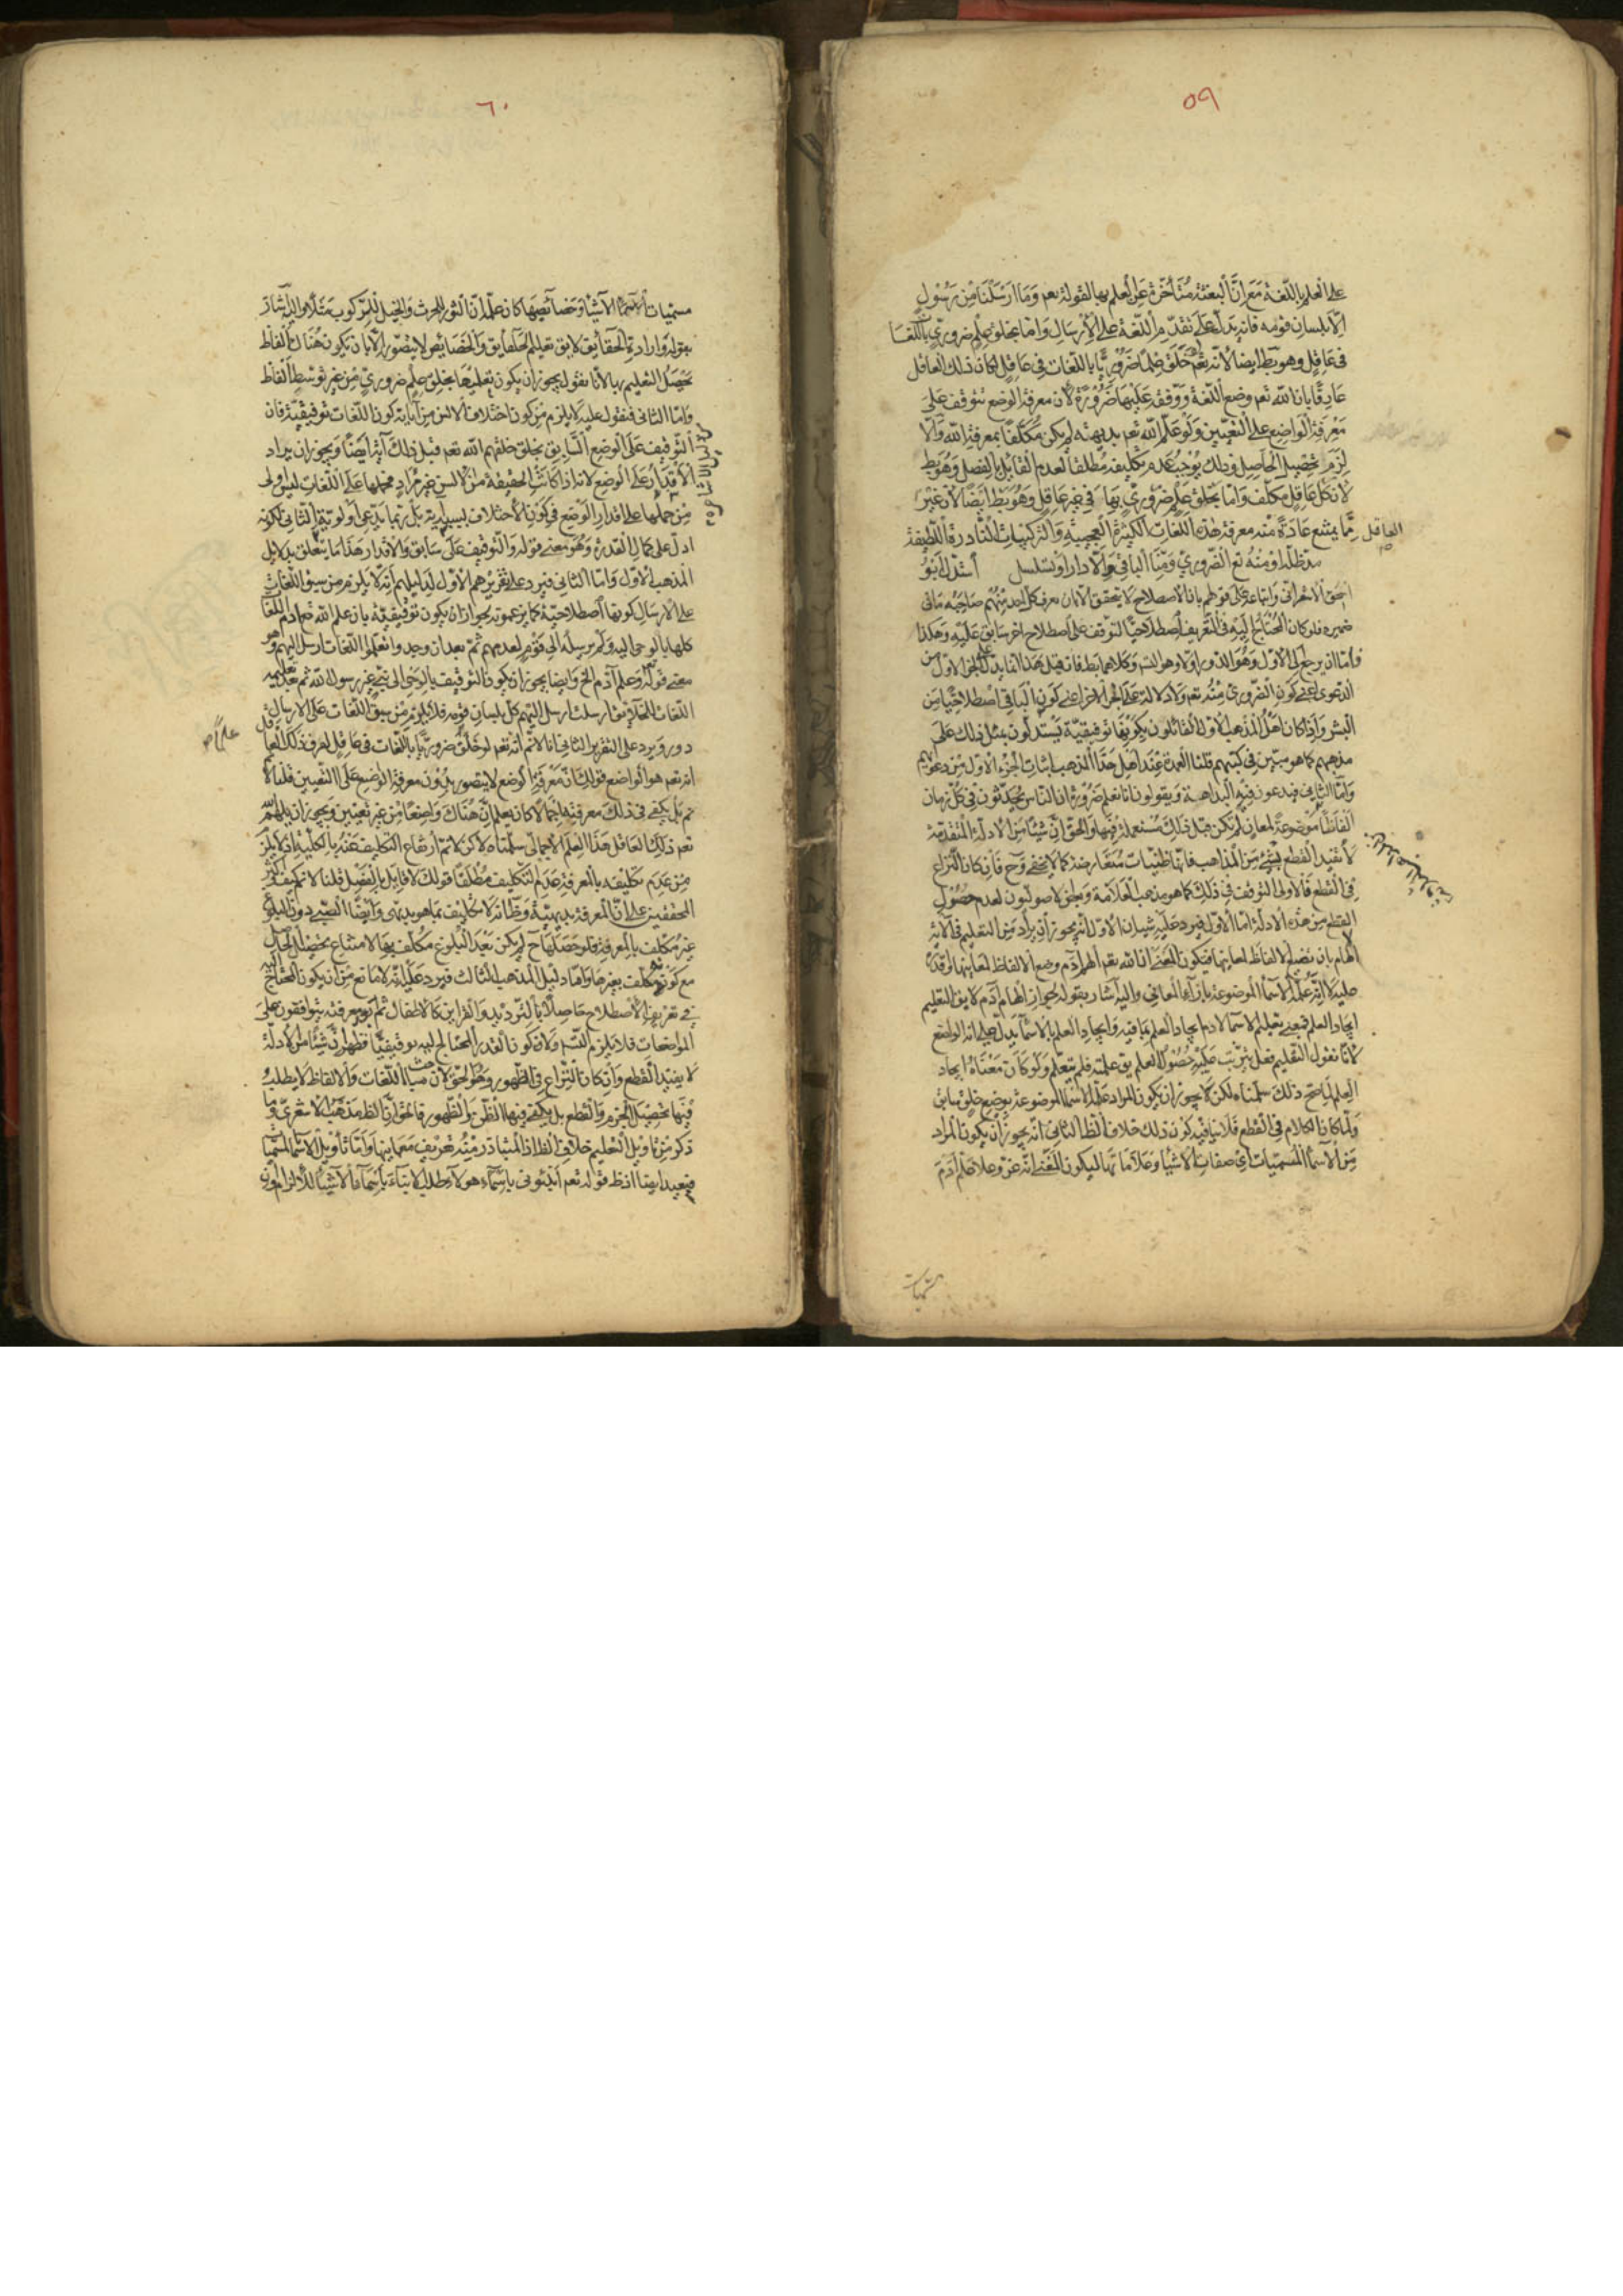 ٥٩
على العلم باللغة مع ان البعثة متأخرة عن العلم بها لقوله تعم وما ارسلنا من رسول
الا بلسان قومه فانه يدل على تقدم اللغة على الارسال واما بخلق علم ضروري باللغات
فى عاقل وهو بط ايضا لانه تعم لو خلق علما ضروريا باللغات فى عاقل لكان ذلك العاقل
عارفا بان الله تعم وضع اللغة ووقفه عليها ضرورة لان معرفة الوضع تتوقف على
معرفة الواضع على التعيين ولو علم الله تعم بديهته لم يكن مكلفا بمعرفة الله والا
لزم تحصيل الحاصل وذلك يوجب عدم تكليفه مطلقا لعدم القائل بالفصل وهو بط
لان كل عاقل مكلف واما بخلق علم ضروري بها فى غير عاقل وهو بط ايضا لان غير
العاقل مما يمتنع عادة منه معرفة هذه اللغات الكثيرة العجيبة والتركيبات النادرة اللطيفة
قد ظله او منه تع الضروري ومنا الباقي والا دار او تسلسل استدل ابو
اسحق الاسفراني واتباعه على قولهم بان الاصطلاح لا يتحقق الا بان يعرف كل احد منهم صاحبه ما فى
ضميره فلو كان المحتاج اليه فى التعريف اصطلاحيا لتوقف على اصطلاح اخر سابق عليه وهكذا
فاما ان يرجع الى الاول وهو الدور اولا وهو التسم وكلاهما بط فان قيل هذا انما يدل على الجزء الاول من
الدعوى اعنى كون الضروري منه تعم ولا دلالة على الجزء الاخر اعنى كون الباقي اصطلاحيا من
البشر واذا كان اهل المذهب الاول القائلون بكونها توقيفية يستدلون بمثل ذلك على
مذهبهم كما هو مبين فى كتبهم قلنا العمدة عند اهل هذا المذهب اثبات الجزء الاول من دعويهم
واما الثاني فيدعون فيه البداهة ويقولون انا نعلم ضرورة ان الناس يحدثون فى كل زمان
الفاظا موضوعة لمعان لم تكن قبل ذلك مستعملة فيها والحق ان شيئا من الادلة المتقدمة
لا تفيد القطع بشئ من المذاهب فانها ظنيات متعارضة كما لا يخفى وح فان كان النزاع
فى القطع فالاولى التوقف فى ذلك كما هو مذهب العلامة ومحقق الاصوليون لعدم حصول
القطع من هذه الادلة اما الاول فيرد عليه شيئان الاول انه يجوز ان يراد من التعليم فى الاية
الهام بان تضع الالفاظ لمعانيها فيكون المعنى ان الله تعم الهم ادم وضع الالفاظ لمعانيها لوقده
عليه لا انه علمه الاسماء الموضوعة بازاء المعاني واليه اشار بقوله لجواز الهام آدم لا يق التعليم
ايجاد العلم فمعنى تعليم الاسماء لادم ايجاد العلم بها فيه وايجاد العلم بالاسماء يدل على انه الواضع
لانا نقول التعليم فعل يترتب عليه حصول العلم يق علمته فلم يتعلم ولو كان معناه ايجاد
العلم لما صح ذلك سلمناه لكن لا يجوز ان يكون المراد علمه الاسماء الموضوعة بوضع خلق سابق
ولما كان الكلام فى القطع فلا ينافيه كون ذلك خلاف الظ الثاني انه يجوز ان يكون المراد
من الاسماء المسميات اى صفات الاشياء وعلاماتها ليكون المعنى انه عز وعلا علم آدم
مسميات
٦٠
مسميات الاسماء الاشياء وخصائصها كان علم ان الثور للحرث والخيل للركوب مثلا والى ذلك اشار
بقوله او ارادة الحقائق لا يق تعليم الحقائق والخصائص لا يتصور الا بان يكون هناك الفاظ
يحصل التعليم بها لانا نقول يجوز ان يكون تعليمها بخلق علم ضروري من غير توسط الفاظ
واما الثاني فنقول عليه لا يلزم من كون اختلاف الالسن من آياته كون اللغات توقيفية فان
التوقيف على الوضع السابق بخلق خلقهم الله تعم قبل ذلك آية ايضا ويجوز ان يراد
الاقدار على الوضع لانه اذا كانت الحقيقة من الالسن غير مراد فحملها على اللغات ليس اولى
من حملها على اقدار الوضع فى كون الاختلاف بسببه آية بل ربما يدعى اولوية الثاني لكونه
ادل على كمال القدرة وهو معنى قوله والتوقيف على سابق والاقدار هذا ما يتعلق بدلائل
المذهب الاول واما الثاني فيرد على تقريرهم الاول لدليلهم انه لا يلزم من سبق اللغات
على الارسال كونها اصطلاحية كما يزعمونه لجواز ان يكون توقيفية بان علم الله تعم ادم اللغات
كلها بالوحى اليه ولم يرسله الى قوم لعدمهم ثم بعد ان وجدوا وتعلموا اللغات ارسل اليهم وهو
معنى قوله وعلم آدم الخ وايضا يجوز ان يكون التوقيف بالوحى الى نبى غير رسول الله ثم بعد تعليمه
اللغات للخلق ارسلت ارسل اليهم كل بلسان قومه فلا يلزم من سبق اللغات على الارسال
دور ويرد على التقرير الثاني انا لا نم انه تعم لو خلق ضروريا باللغات فى عاقل لعرف ذلك العاقل
علما
انه تعم هو الواضع قولك ان معرفة الوضع لا يتصور بدون معرفة الواضع على التعيين قلنا لا
نم بل يكفى فى ذلك معرفته اجمالا كان يعلم ان هناك واضعا من غير تعيين ويجوز ان يلهم الله
تعم ذلك العاقل هذا العلم الاجمالى سلمناه لكن لا نم ارتفاع التكليف عنه بالكلية اذ لا يلزم
من عدم تكليفه بالمعرفة عدم التكليف مطلقا قولك لا قائل بالفصل قلنا لا نم كيف واكثر
المحققين على ان المعرفة بديهية وظ انه لا تكليف بما هو بديهى وايضا الصبى دون البلوغ
غير مكلف بالمعرفة فلو حصلها ح لم يكن بعد البلوغ مكلف بها لامتناع تحصيل الحاصل
مع كونه مكلف بغيرها واما دليل المذهب الثالث فيرد عليه انه لا مانع من ان يكون المحتاج اليه
فى تعريف الاصطلاح حاصلا بالترديد والقراين كالاطفال ثم بعد معرفته يتوافقون على
المواضعات فلا يلزم التسم ولان كون القدر المحتاج اليه توقيفيا فظهر ان شيئا من الادلة
لا يفيد القطع وان كان النزاع فى الظهور وهو الحق لان مباحث اللغات والالفاظ لا يطلب
فيها تحصيل الجزم والقطع بل يكتفى فيها الظن والظهور فالحق ان الظ مذهب الاشعرى وما
ذكر من تاويل التعليم خلاف الظ اذ المتبادر منه تعريف معانيها واما تأويل الاسماء بالمسميات
فبعيد ايضا اذ ظ قوله تعم انبئونى باسماء هولاء طلب الانباء باسماء الاشياء للالزام